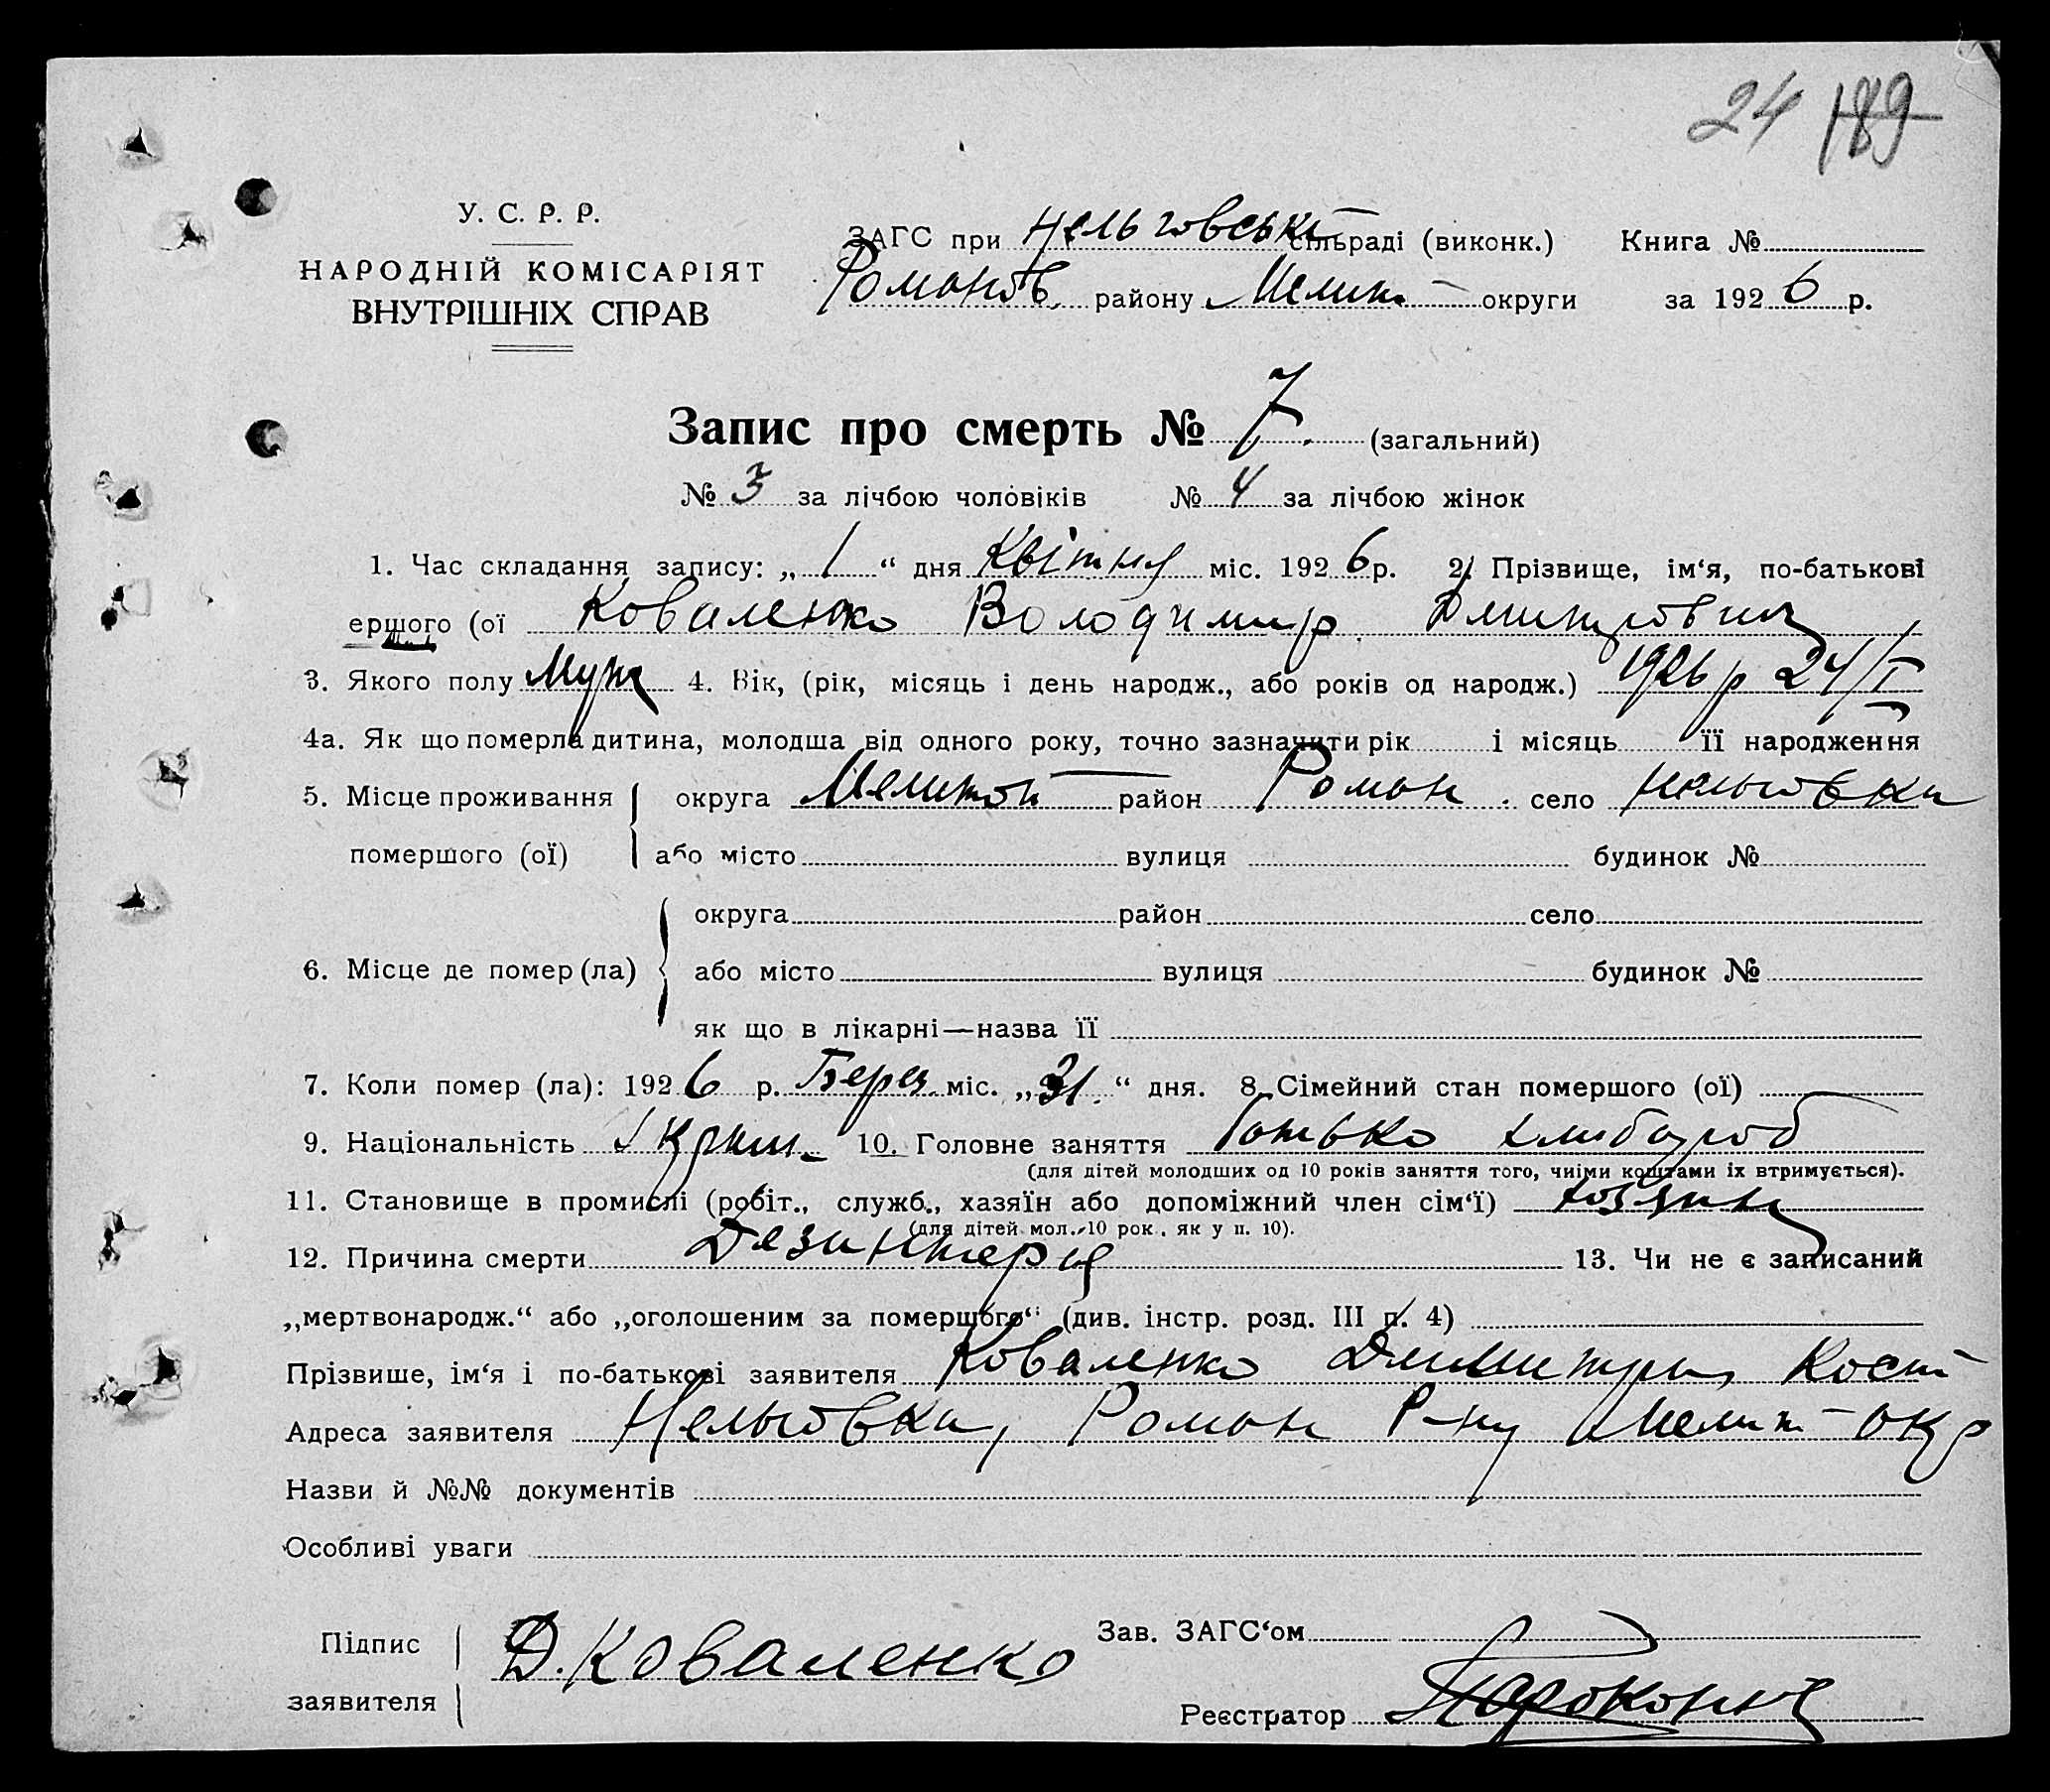 24 189
У. С. Р. Р.
НАРОДНІЙ КОМІСАРІЯТ
ВНУТРІШНІХ СПРАВ
ЗАГС при Нельговській сільраді (виконк.) Книга №
Романов. району Мелит. округи за 1926 р.
Запис про смерть № 7. (загальний)
№ 3 за лічбою чоловіків № 4 за лічбою жінок
1. Час складання запису: „ 1 “ дня Квітня міс. 1926 р. 2. Прізвище, ім‘я, по-батькові
ершого (ої Коваленко Володимир Дмитрович
3. Якого полу Муж 4. Вік, (рік, місяць і день народж., або років од народж.) 1926 р 24/I
4а. Як що померла дитина, молодша від одного року, точно зазначити рік і місяць її народження
5. Місце проживання округа Мелитоп район Роман. село Нельговка
помершого (ої) або місто вулиця будинок №
округа район село
6. Місце де помер (ла) або місто вулиця будинок №
як що в лікарні—назва її
7. Коли помер (ла): 1926 р. Берез. міс. „ 31. “ дня. 8. Сімейний стан помершого (ої)
9. Національність Украин. 10. Головне заняття Батько хлибороб
(для дітей молодших од 10 років заняття того, чиїми коштами їх втримується).
11. Становище в промислі (робіт., служб., хазяїн або допоміжний член сім‘ї) хозяин
(для дітей мол. 10 рок., як у п. 10).
12. Причина смерти Дезинтерия 13. Чи не є записаний
„мертвонародж.“ або „оголошеним за помершого“ (див. інстр. розд. III п. 4)
Прізвише, ім‘я і по-батькові заявителя Коваленко Кост
Адреса заявителя Нельговка, Роман Р-ну Мелит-окр
Назви й №№ документів
Особливі уваги
Підпис Д. Коваленко Зав. ЗАГС‘ом
заявителя Реєстратор